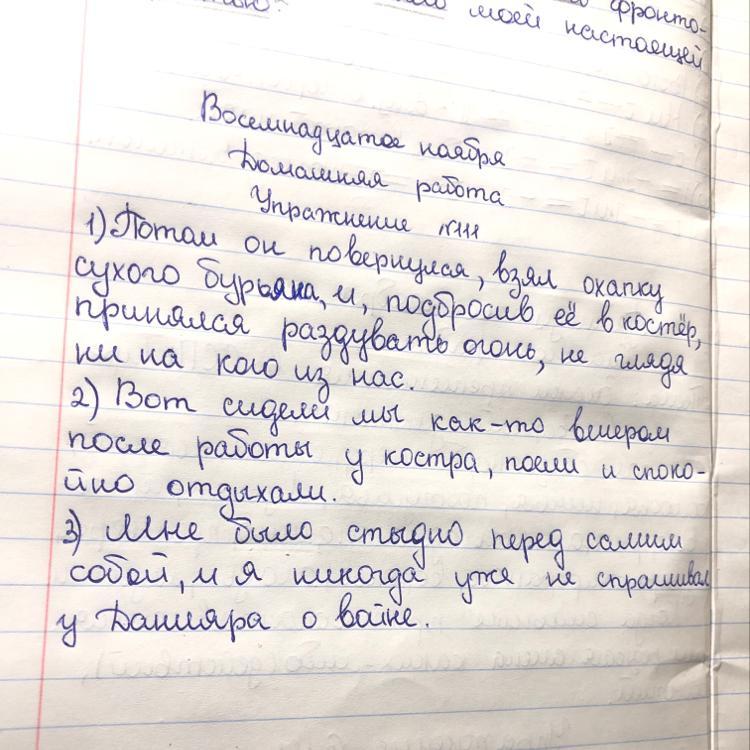 фронто-
моей настоящей
Восемнадцатое ноября
Домашняя работа
Упражнение №111
1) Потом он повернулся, взял охапку
сухого бурьяна, и, подбросив её в костёр,
принялся раздувать огонь, не глядя
ни на кого из нас.
2) Вот сидели мы как-то вечером
после работы у костра, поели и споко-
йно отдыхали.
3) Мне было стыдно перед самим
собой, и я никогда уже не спрашивал
у Данияра о войне.